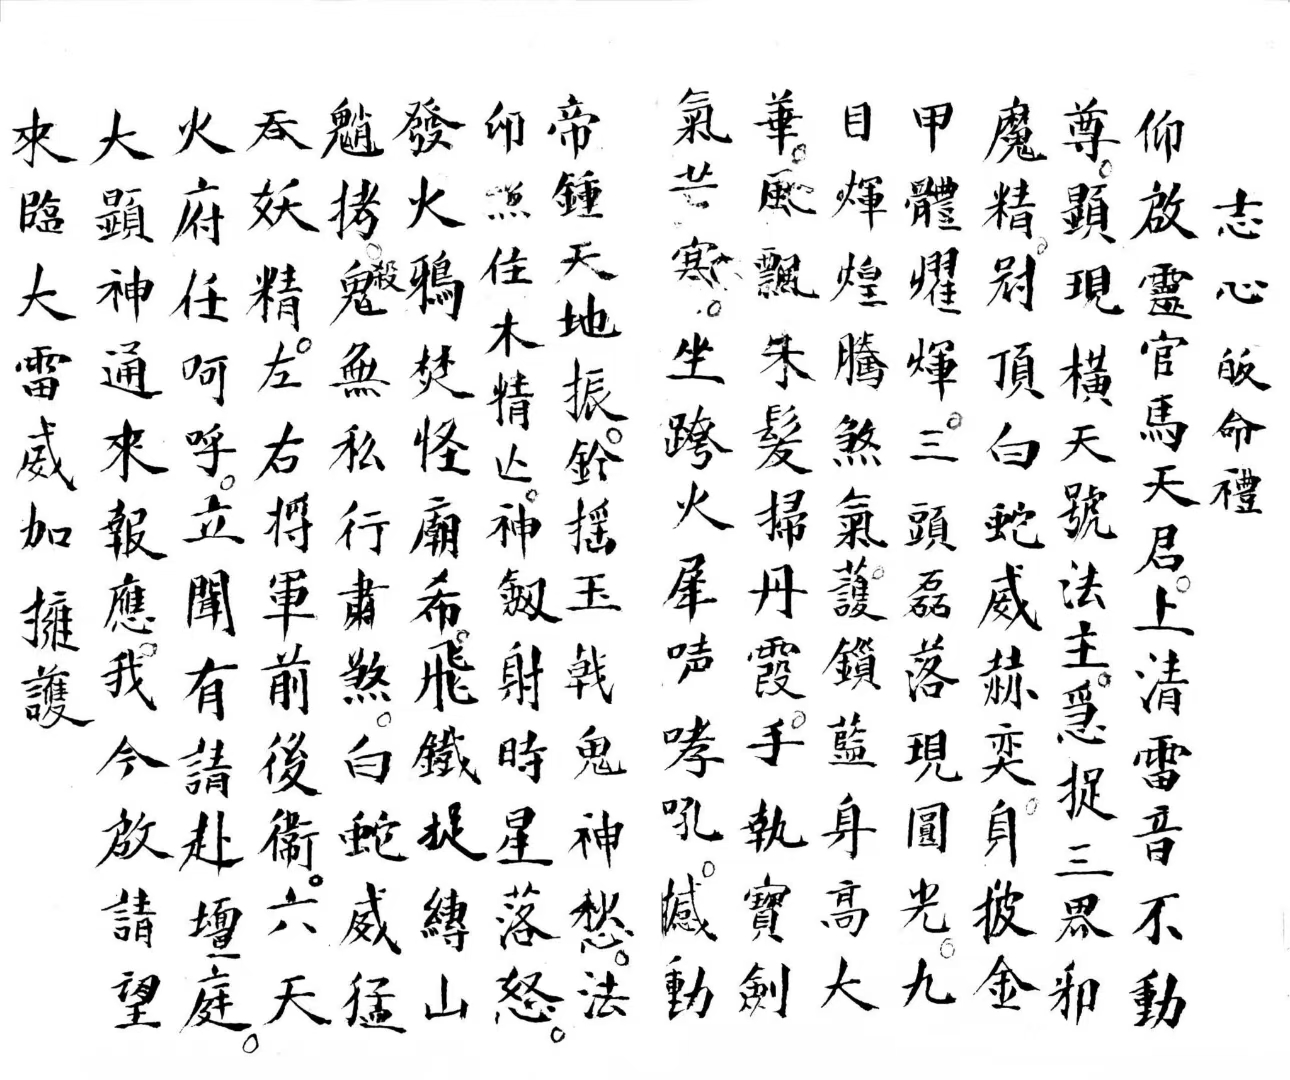 志心皈命禮
仰啟靈官馬天君。上清雷音不動
尊。顯現橫天號法主。急捉三界邪
魔精。尉頂白蛇威赫奕。身披金
甲體耀輝。三頭磊落現圓光。九
目輝煌騰煞氣。護鎖藍身高大
華。風飄朱髮掃丹霞。手執寶劍
氣芒寒。坐跨火犀吽哮吼。撼動
帝鍾天地振。鈴搖玉戟鬼神愁。法
印照住木精亾。神劔射時星落怒。
發火鴉焚怪廟希。飛鐵捉縛山
魈拷。殺鬼無私行肅煞。白蛇威猛
吞妖精。左右將軍前後衞。六天
火府任呵呼。立聞有請赴壇庭。
大顯神通來報應。我今啟請望
來臨大雷威加擁護